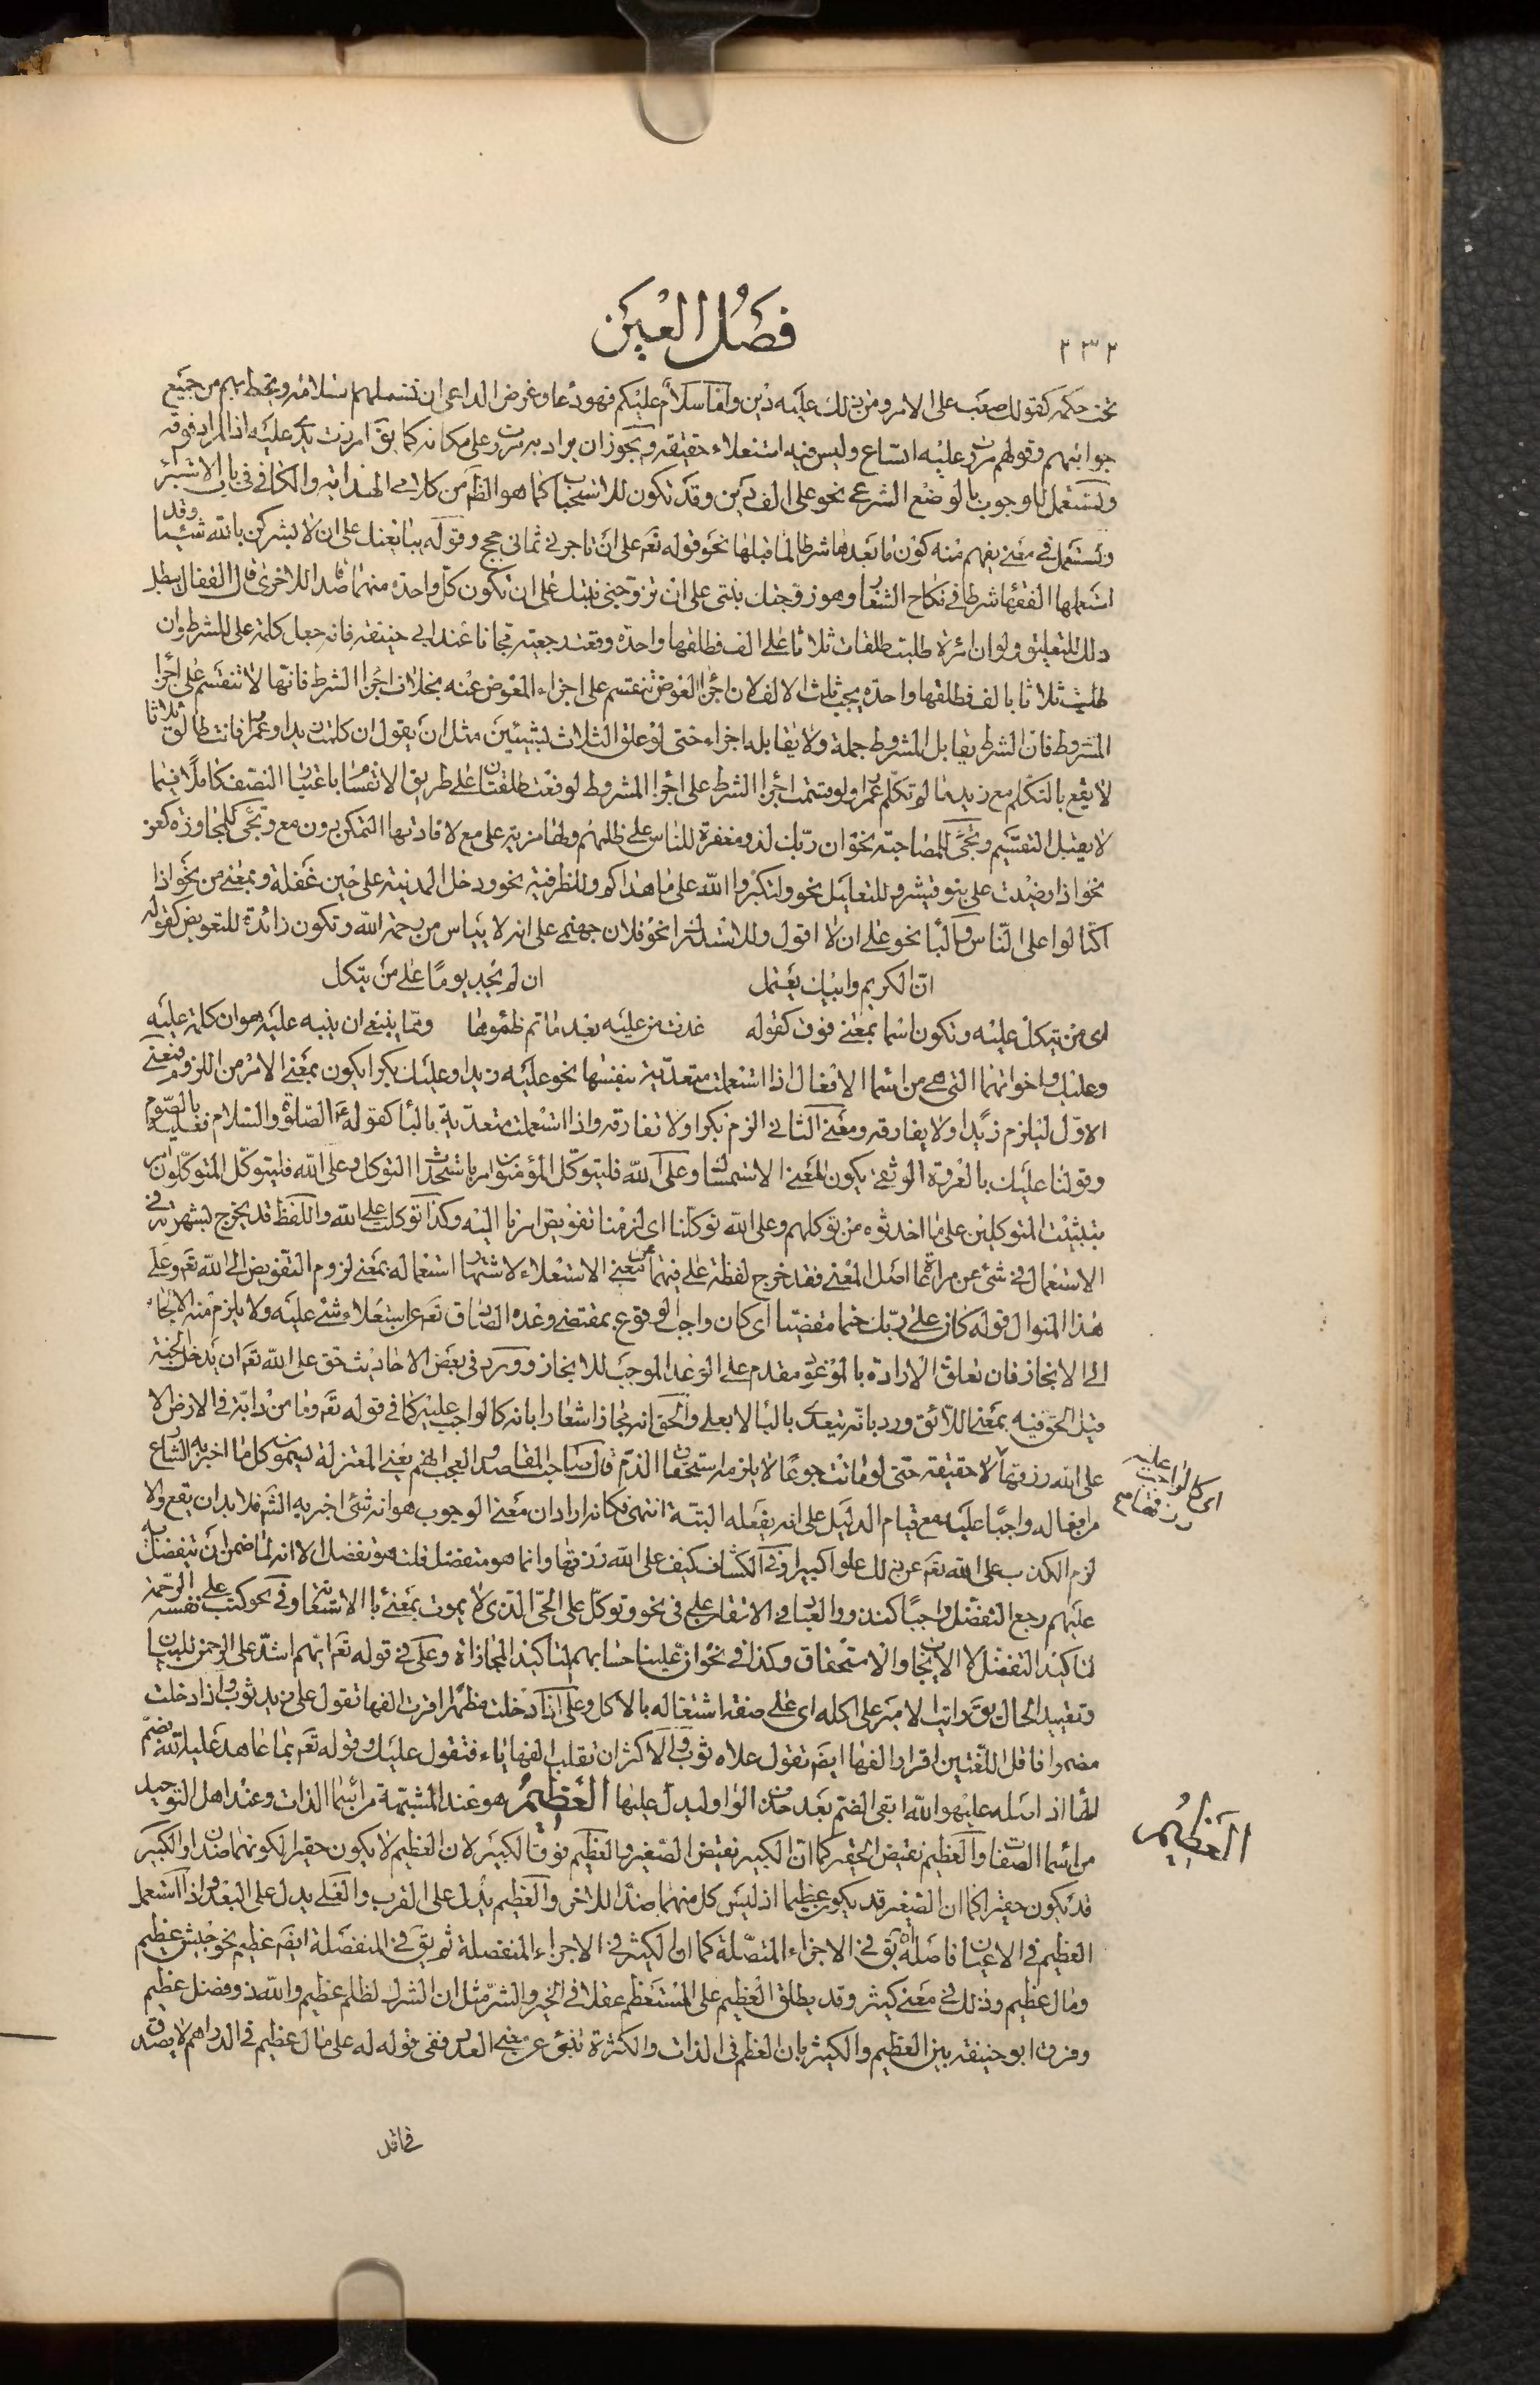 ٢٣٢
فصل العين
تحت حكمه كقولك صعب على الامر ومن ذلك عليه دين واما سلام عليكم فهو دعاء وغرض الداعى ان تشملهم سلامته وتحيط بهم من جميع
جوانبهم وقولهم مررت عليه اتساع وليس فيه استعلاء حقيقة ويجوز ان يراد به مررت على مكانه كما يق امررت يدى عليه اذ المراد فوقه
وتستعمل للوجوب بالوضع الشرعى نحو على الف دين وقد تكون للاستحباب كما هو الظ من كلام الهداية والكافى فى باب الاستبراء
وتستعمل فى معنى يفهم منه كون ما بعدها شرطا لما قبلها نحو قوله تعم على ان تاجرنى ثمانى حجج وقوله يبايعنك على ان لا يشركن بالله شيئا وقد
استعملها الفقهاء شرطا فى نكاح الشغار وهو زوجتك بنتى على ان تزوجنى بنتك على ان تكون كل واحدة منهما صداقا للاخرى قال القفال بطل
ذلك للتعليق ولو ان امرأة طلبت طلقات ثلاثا على الف فطلقها واحدة وقعت رجعية مجانا عند ابى حنيفة فانه جعل كلمة على للشرط وان
طلبت ثلاثا بالف فطلقها واحدة يجب ثلث الالف لان اجزاء العوض تنقسم على اجزاء المعوض عنه بخلاف اجزاء الشرط فانها لا تنقسم على اجزاء
المشروط فان الشرط يقابل المشروط جملة ولا يقابله اجزاء حتى لو علق الثلاث بشيئين مثل ان يقول ان كلمت زيدا وعمرا فانت طالق ثلاثا
لا يقع بالتكلم مع زيد ما لم تكلم عمرا ولو قسمت اجزاء الشرط على اجزاء المشروط لوقعت طلقتان على طريق الانقسام باعتبار النصف كاملا فيما
لا يقبل التقسيم وتجئ للمصاحبة نحو ان ربك لذو مغفرة للناس على ظلمهم ولها مزية على مع لافادتها التمكن دون مع وتجئ للمجاوزة كعن
نحو اذا رضيت على بنو قشير وللتعليل نحو ولتكبروا الله على ما هداكم وللظرفية نحو ودخل المدينة على حين غفلة وبمعنى من نحو اذا
اكتالوا على الناس والباء نحو على ان لا اقول وللاستدراك نحو فلان جهنمى على انه لا ييأس من رحمة الله وتكون زائدة للتعويض كقوله
ان الكريم وابيك يعتمل ان لم يجد يوما على من يتكل
اى من يتكل عليه وتكون اسما بمعنى فوق كقوله غدت من عليه بعد ما تم ظمؤها ومما ينبغى ان ينبه عليه هو ان كلمة عليه
وعليك واخواتهما التى هى من اسماء الافعال اذا استعملت متعدية بنفسها نحو عليه زيدا وعليك بكرا يكون بمعنى الامر من اللزوم فمعنى
الاول ليلزم زيدا ولا يفارقه ومعنى الثانى الزم بكرا ولا تفارقه واذا استعملت متعدية بالباء كقوله عليه الصلوة والسلام فعليه بالصوم
وقولنا عليك بالعروة الوثقى يكون المعنى الاستمساك وعلى الله فليتوكل المؤمنون امر باستحداث التوكل وعلى الله فليتوكل المتوكلون امر
بتثبيت المتوكلين على ما احدثوه من توكلهم وعلى الله توكلنا اى لزمنا تفويض امرنا اليه وكذا توكلت على الله واللفظ قد يخرج بشهرته فى
الاستعمال فى شئ عن مراعاة اصل المعنى فقد خرج لفظة على فيهما عن معنى الاستعلاء لاشتهار استعماله بمعنى لزوم التفويض الى الله تعم وعلى
هذا المنوال قوله كان على ربك حتما مقضيا اى كان واجب الوقوع بمقتضى وعده الصادق تعم عن استعلاء شئ عليه ولا يلزم منه الالجاء
الى الانجاز فان تعلق الارادة بالموعود مقدم على الوعد الموجب للانجاز وورد فى بعض الاحاديث حق على الله تعم ان يدخل الجنة
قيل الحق فيه بمعنى اللائق ورد بانه يتعدى بالباء لا بعلى والحق انه مجاز اشعارا بانه كالواجب عليه كما فى قوله تعم وما من دابة فى الارض الا
على الله رزقها لا حقيقة حتى لو ماتت جوعا لا يلزمه استحقاق الذم قال صاحب المقاصد والعجب انهم يعنى المعتزلة يسمون كل ما اخبر به الشارع
من افعاله واجبا عليه مع قيام الدليل على انه يفعله البتة انتهى فكانه اراد ان معنى الوجوب هو انه شئ اخبر به الشرع فلا بد ان يقع والا
لزم الكذب على الله تعم عن ذلك علوا كبيرا وفى الكشاف كيف على الله رزقها وانما هو متفضل قلت هو تفضل الا انه لما ضمن ان يتفضل به
عليهم رجع التفضل واجبا كنذور العباد والاستعلاء فى نحو وتوكل على الحى الذى لا يموت بمعنى باء الاستعانة وفى نحو كتب على نفسه الرحمة
لتاكيد التفضل لا الايجاب والاستحقاق وكذا فى نحو ان علينا حسابهم لتاكيد المجازاة وعلى فى قوله تعم ايهم اشد على الرحمن للبيان
وتفيد الحال يق رايت الامير على اكله اى على صفة اشتغاله بالاكل وعلى اذا دخلت مظهرا اقرت الفها تقول على زيد ثوب واذا دخلت
مضمرا فاقل اللغتين اقرار الفها ايضا تقول علاه ثوب والاكثر ان تقلب الفها ياء فتقول عليك وقوله تعم بما عاهد عليه الله بضم
الهاء اذ اصله عليهو الله ابقى الضم بعد حذف الواو ليدل عليها العظيم هو عند المشبهة من اسماء الذات وعند اهل التوحيد
من اسماء الصفات والعظيم نقيض الحقير كما ان الكبير نقيض الصغير والعظيم فوق الكبير لان العظيم لا يكون حقيرا لكونهما ضدان والكبير
قد يكون حقيرا كما ان الصغير قد يكون عظيما اذ ليس كل منهما ضدا للاخر والعظيم يدل على القرب والعلى يدل على البعد واذا استعمل
العظيم فى الاعيان فاصله ان يق فى الاجزاء المتصلة كما ان الكثير فى الاجزاء المنفصلة ثم يق فى المنفصلة ايضا عظيم نحو جيش عظيم
ومال عظيم وذلك فى معنى كثير وقد يطلق العظيم على المستعظم عقلا فى الخير والشر مثل ان الشرك لظلم عظيم والله ذو فضل عظيم
وفرق ابو حنيفة بين العظيم والكثير بان العظم فى الذات والكثرة تنبئ عن معنى العدد ففى قوله له على مال عظيم فى الدراهم لا يصدق
اى كالواجب عليه
رزقها مح
العظيم
فى اقل